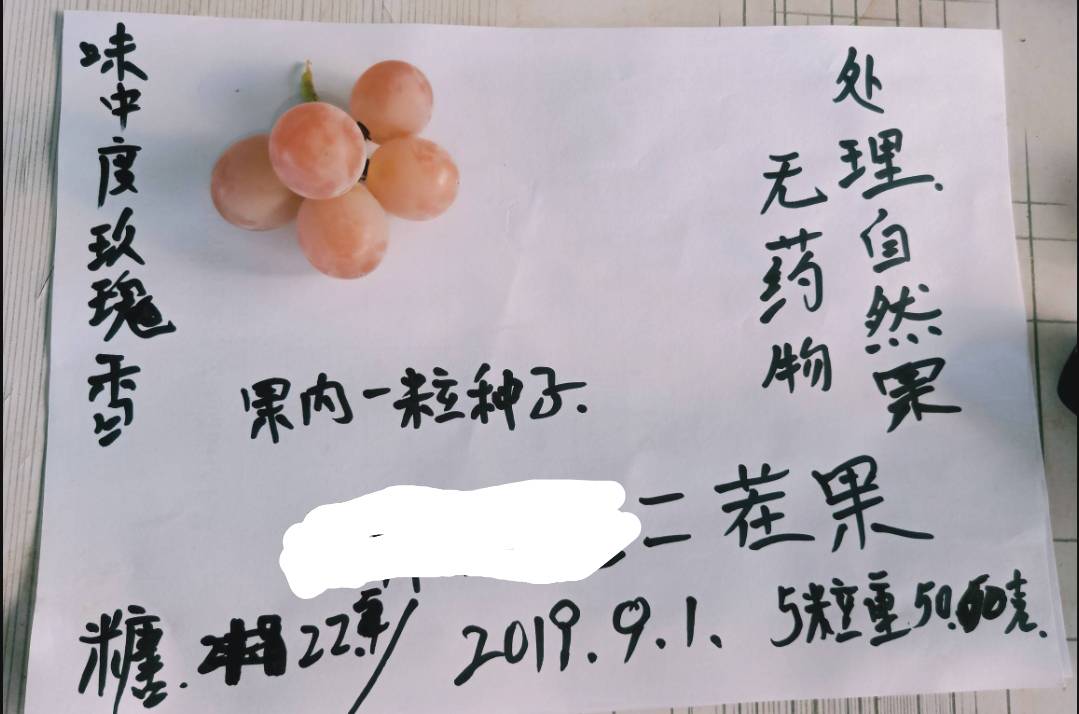 味中度玫瑰香
处理自然果
无药物
果内一粒种子.
二茬果
糖. 22.
2019.9.1.
5粒重50.60克.